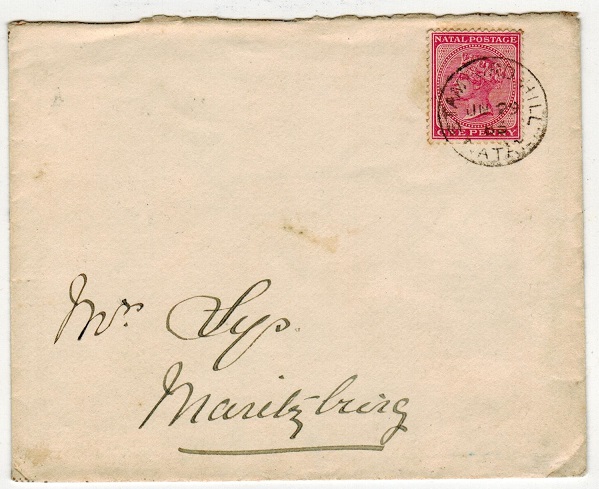 NATAL POSTAGE
ONE PENNY
HILL
Mr. Syp.
Maritzburg